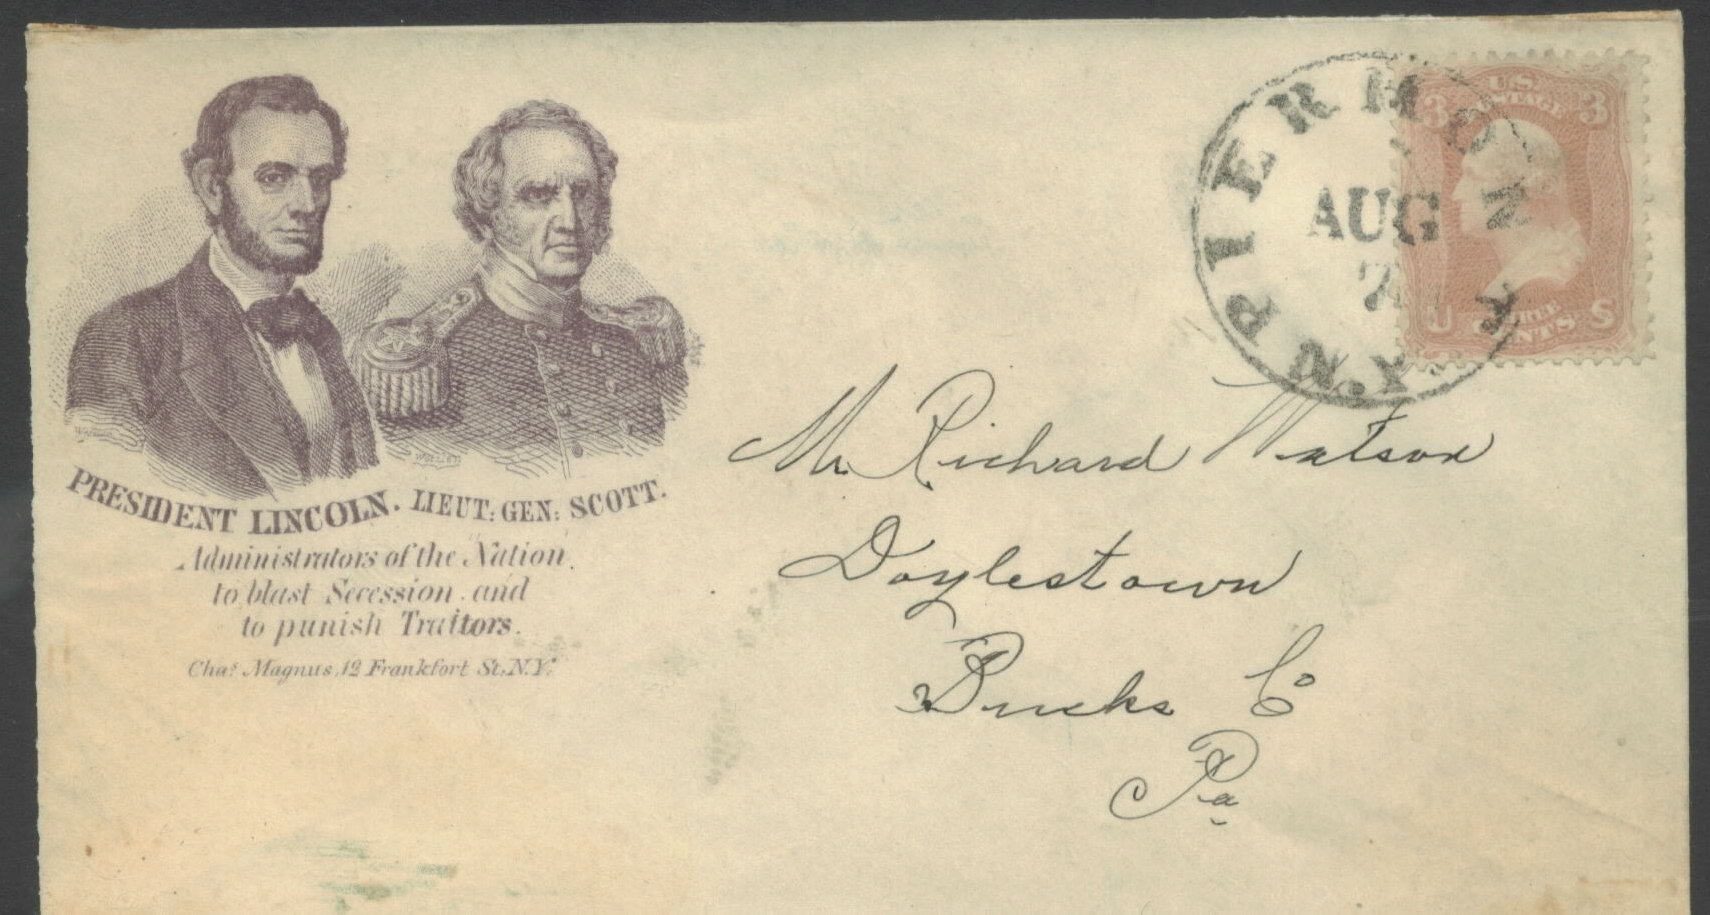 PRESIDENT LINCOLN. LIEUT: GEN: SCOTT.
Administrators of the Nation
to blast Secession and
to punish Traitors.
Chas. Magnus, 12 Frankfort St. N.Y.
PIERMONT
N.Y.
AUG
U.S.
POSTAGE
3 3
U S
THREE
CENTS
Mr Richard Watson
Doylestown
Bucks Co
Pa